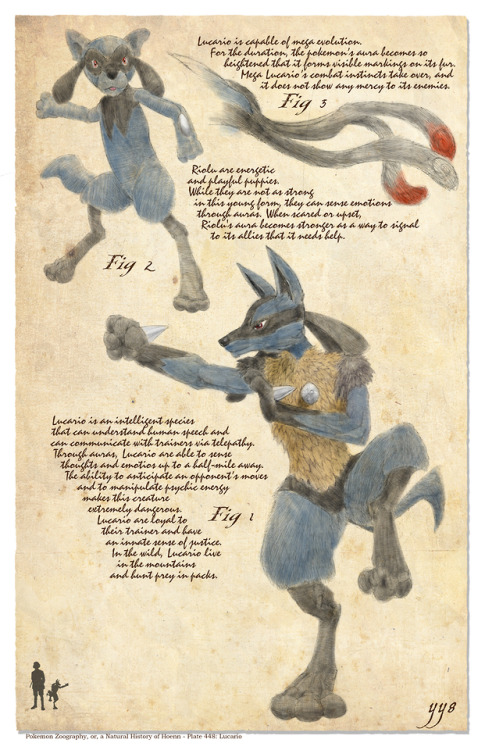 Lucario is capable of mega evolution.
For the duration, the pokemon's aura becomes so
heightened that it forms visible markings on its fur.
Mega Lucario's combat instincts take over, and
it does not show any mercy to its enemies.
Fig 3
Riolu are energetic
and playful puppies.
While they are not as strong
in this young form, they can sense emotions
through auras. When scared or upset,
Riolu's aura becomes stronger as a way to signal
to its allies that it needs help.
Fig 2
Lucario is an intelligent species
that can understand human speech and
can communicate with trainers via telepathy.
Through auras, Lucario are able to sense
thoughts and emotios up to a half-mile away.
The ability to anticipate an opponent's moves
and to manipulate psychic energy
makes this creature
extremely dangerous.
Lucario are loyal to
their trainer and have
an innate sense of justice.
In the wild, Lucario live
in the mountains
and hunt prey in packs.
Fig 1
yy8
Pokemon Zoography, or, a Natural History of Hoenn - Plate 448: Lucario